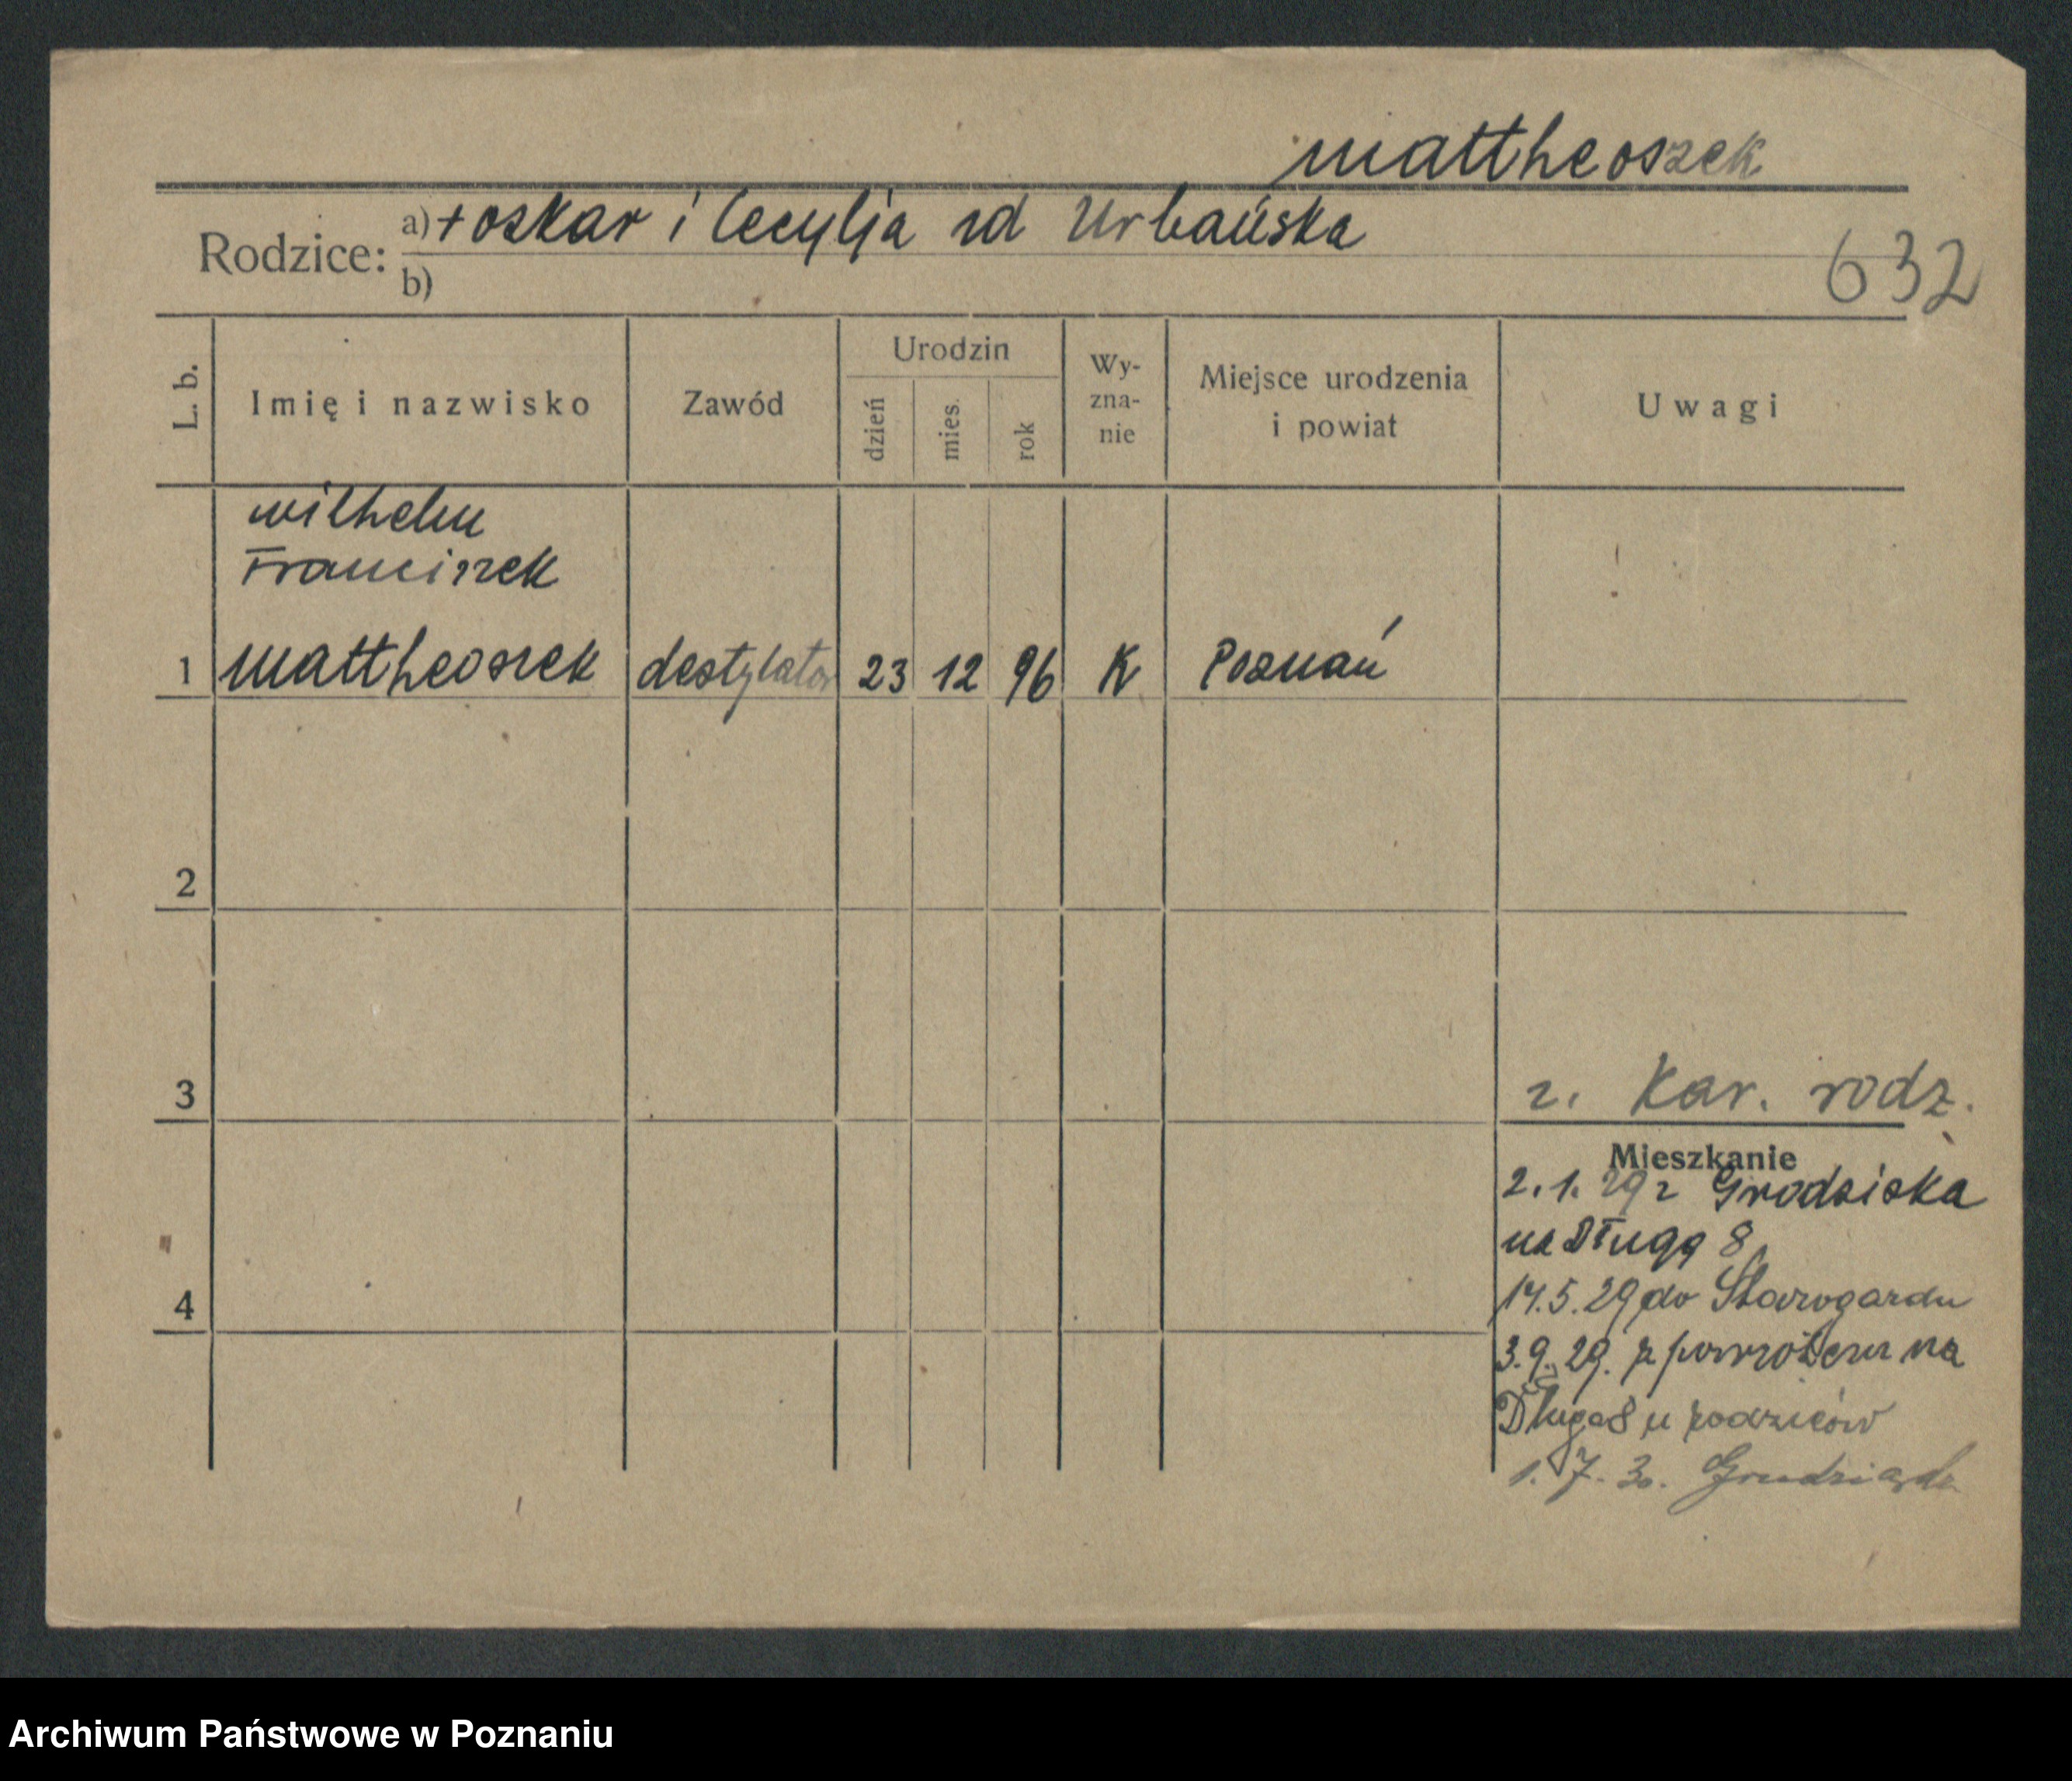 Mattheoszek
Rodzice: a) + Oskar i Cecylja zd Urbańska
b)
632
L. b.
Imię i nazwisko
Zawód
Urodzin
dzień
mies.
rok
Wy-
zna-
nie
Miejsce urodzenia
i powiat
Uwagi
Wilhelm
Franciszek
1 Mattheoszek destylator 23 12 96 K Poznań
2
3
z. Kar. rodz.
Mieszkanie
2.1.29 z Grodziska
na Długą 8
4
14.5.29 do Starogardu
3.9.29. z powrotem na
Długa 8 u rodziców
1.7.30. Grudziądz
Archiwum Państwowe w Poznaniu